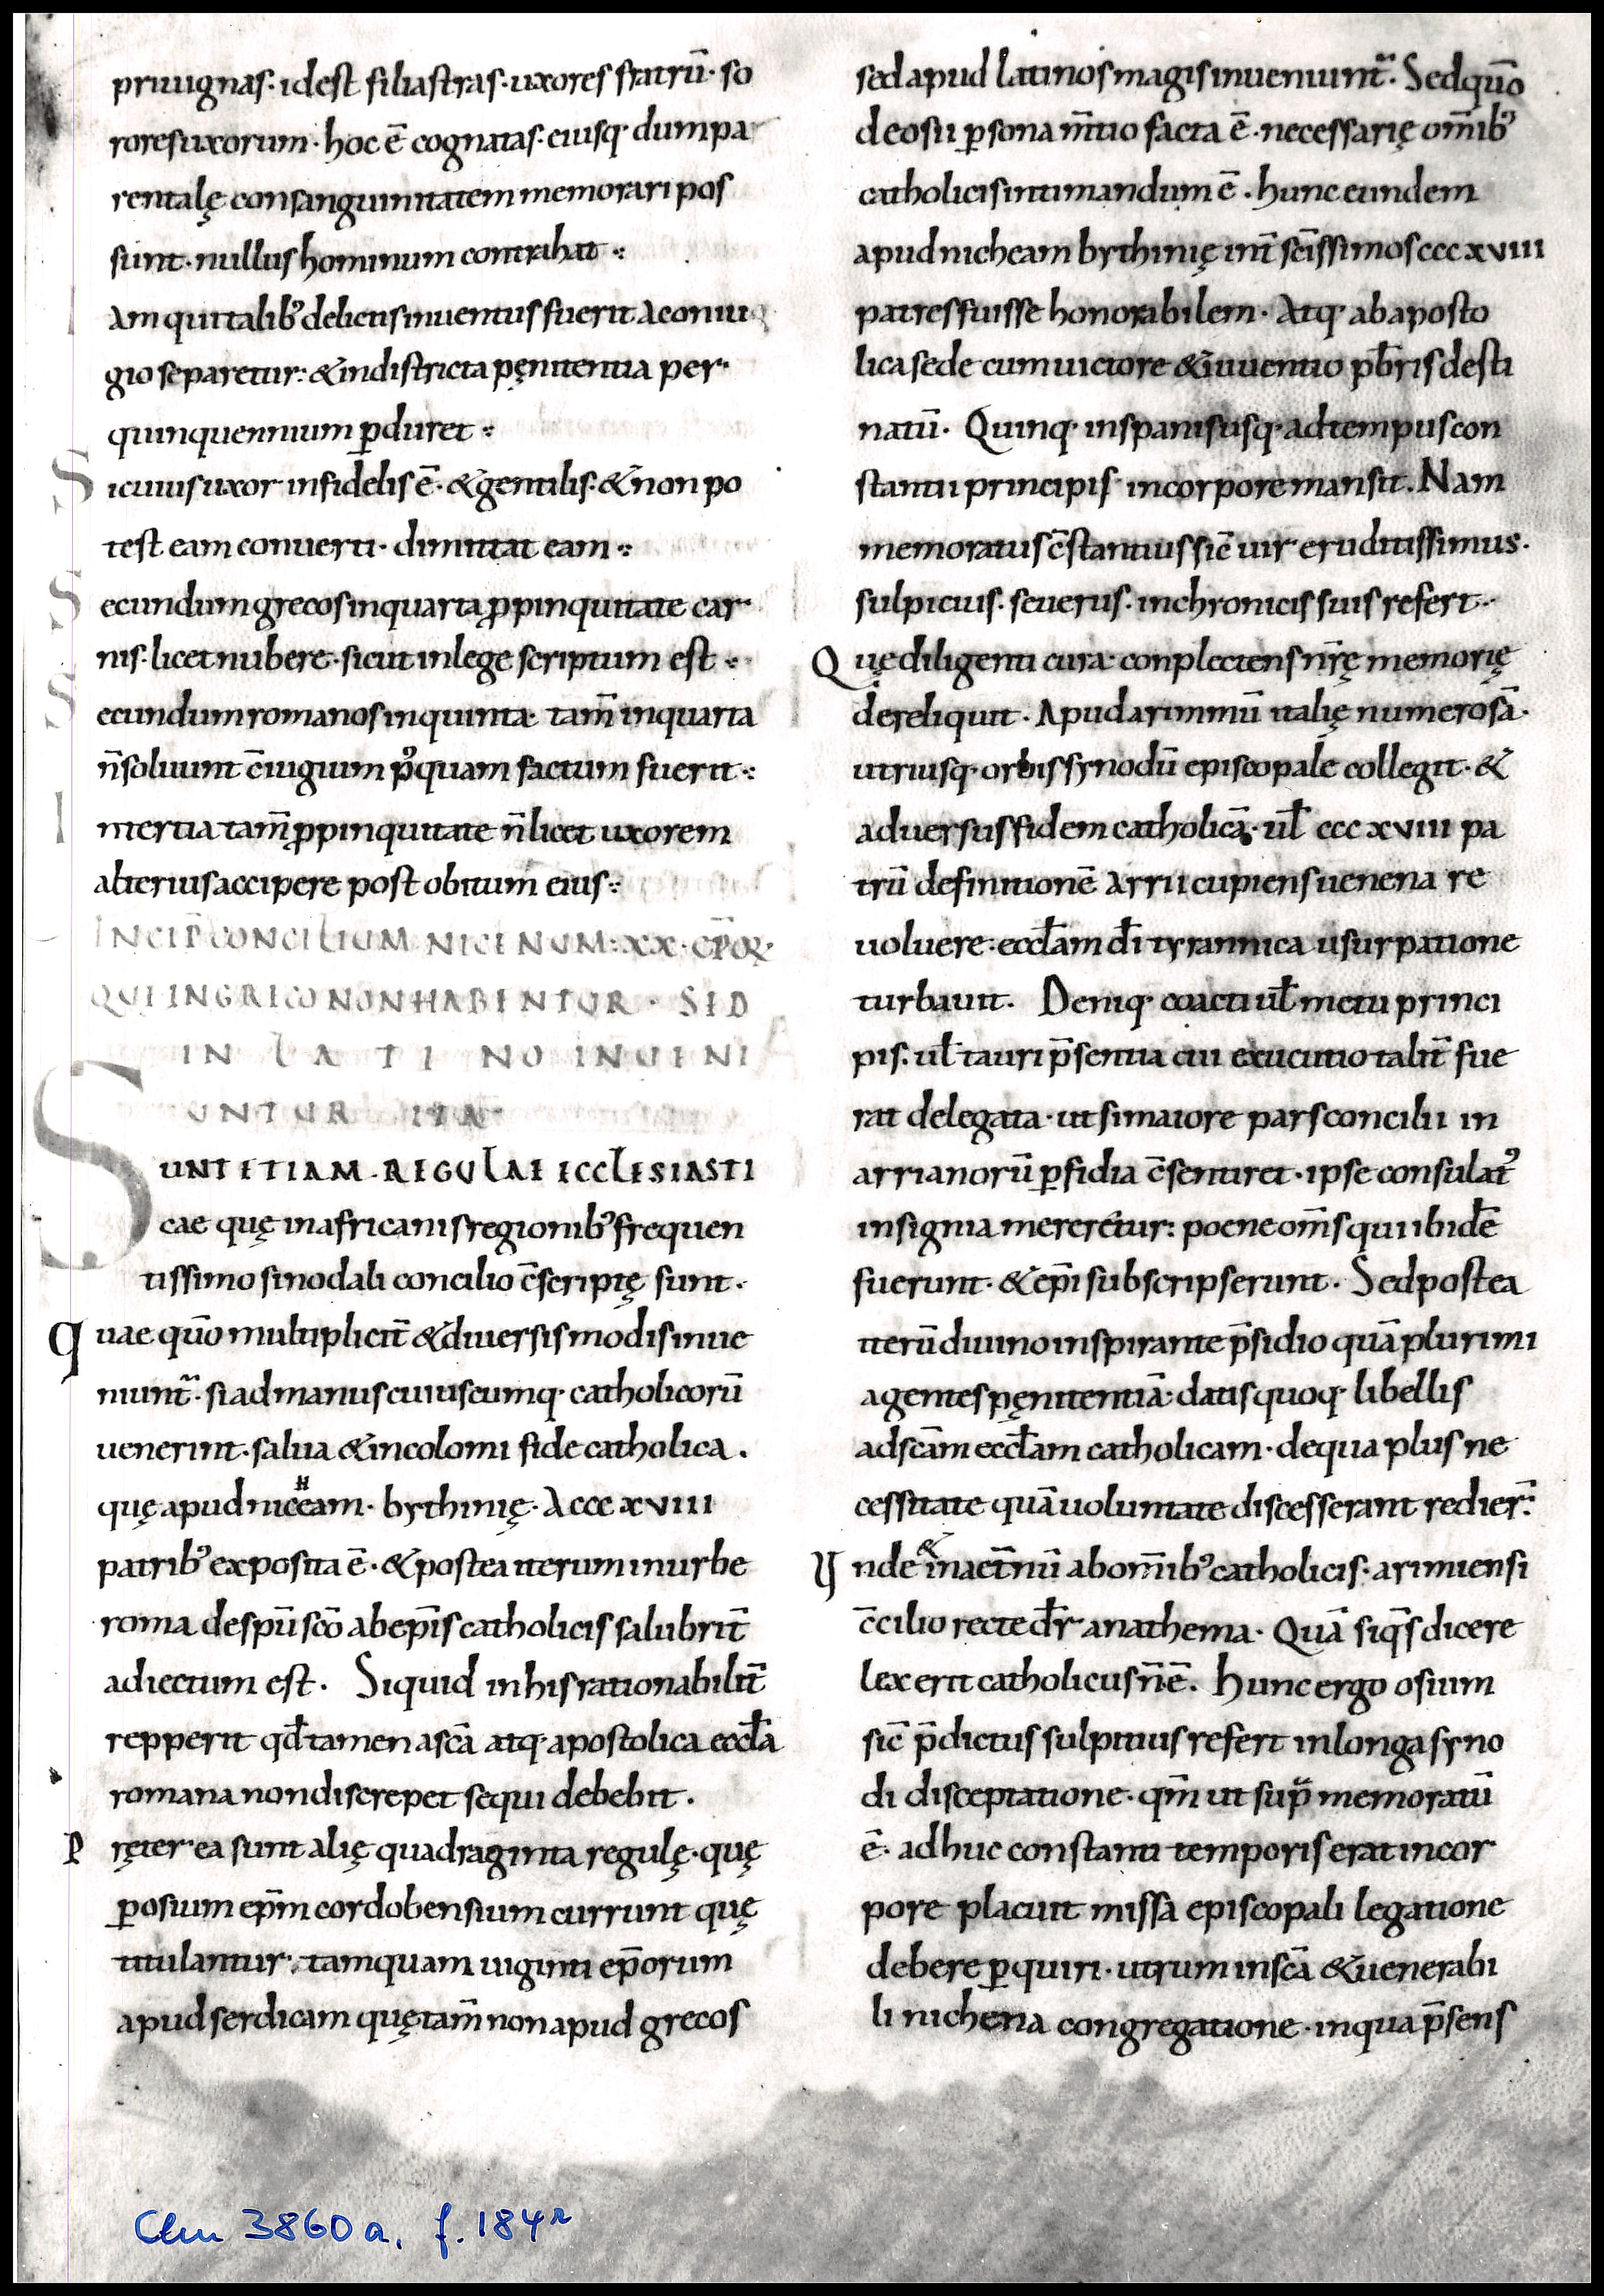 priuignas· idest filiastras· uxores fratrū· so
roresuxorum· hoc ē cognatas· eiusq· dumpa
rentalę consanguinitatem memorari pos
sunt· nullus hominum contrahat ·:
Iam quitalibꝰ delictisinuentusfuerit aconiu
gio separetur: &indistricta pęnitentia per
quinquennium ꝑduret ·:
Sicuiusuxor infidelis ē· &gentilis· &non po
test eam conuerti· dimittat eam ·:
Secundumgrecosinquarta ꝓpinquitate car
nis· licet nubere· sicut inlege scriptum est ·:
Secundumromanosinquinta· tam̄ inquarta
n̄soluunt c̄iugium pꝰquam factum fuerit ·:
Intertia tam̄ ꝓpinquitate n̄licet uxorem
alterius accipere post obitum eius ·:
INCIP̄ CONCILIUM NICENUM: XX· EP̄OR·
QUI INGRECO NON HABENTUR· SED
IN LATINO INUENI
UNTUR ITA·
SUNT ETIAM REGULAE ECCLESIASTI
cae quę inafricanisregionibꝰ frequen
tissimo sinodali concilio c̄scriptę sunt·
quae quō multiplicit̄ &diuersismodisinue
niunt᷑· siadmanuscuiuscumq· catholicorū
uenerint· salua &incolomi fide catholica·
quę apudniceham· bythinię· Accc xviii
patribꝰ exposita ē· &postea iterum inurbe
roma despū scō abep̄is catholicis salubrit̄
adiectum est· Siquid inhisrationabilit̄
repperit qđ tamen ascā atq· apostolica eccƚa
romana nondiscrepet sequi debebit·
Pręter ea sunt alię quadraginta regulę· quę
ꝑosium ep̄m cordobensium currunt quę
titulantur· tamquam uiginti ep̄orum
apud serdicam quętam̄ nonapud grecos
sed apud latinos magisinueniunt᷑· Sedquō
deosii ꝑsona m̄tio facta ē· necessarię om̄ibꝰ
catholicisintimandum ē· hunc eundem
apud nicheam bythinię int̄ sc̄issimos ccc xviii
patresfuisse honorabilem· Atq· abaposto
lica sede cumuictore &iuuentio pb̄ris desti
natū· Quinq· inspanisusq· adtempuscon
stantii principis incorpore mansit· Nam
memoratus c̄stantius sic̄ uir eruditissimus·
sulpicius· seuerus· inchronicis suis refert·
Quę diligenti cura conplectens nr̄ę memorię
dereliquit· Apud ariminū italię numerosā·
utriusq· orbis synodū episcopalē collegit· &
aduersusfidem catholicā· uƚ ccc xviii pa
trū definitionē arrii cupiens uenena re
uoluere· eccƚam dī tyrannica usurpatione
turbauit· Deniq· coacti uƚ metu princi
pis· uƚ tauri p̄sentia cui exucutio talit̄ fue
rat delegata· ut simaiore parsconcilii in
arrianorū ꝑfidia c̄sentiret· ipse consulatꝰ
insignia mereretur: poene om̄s qui ibidē
fuerunt· &ep̄i subscripserunt· Sedpostea
iterūdiuinoinspirante p̄sidio quā plurimi
agentespęnitentiā· datisquoq· libellis
adscām eccƚam catholicam· dequa plus ne
cessitate quāuoluntate discesserant redier̄:
Unde & inaet̄nū abom̄ibꝰ catholicis· arimiensi
c̄cilio recte dr̄ anathema· Quā siq̄s dicere
lex erit catholicus n̄ ē· Hunc ergo osium
sic̄ p̄dictus sulpitius refert inlonga syno
di disceptatione· qm̄ ut supᷓ memoratū
ē· adhuc constanti temporis erat incor
pore placuit missa episcopali legatione
debere ꝑquiri· utrum inscā &uenerabi
li nichena congregatione· inqua p̄sens
Clm 3860a, f. 184r